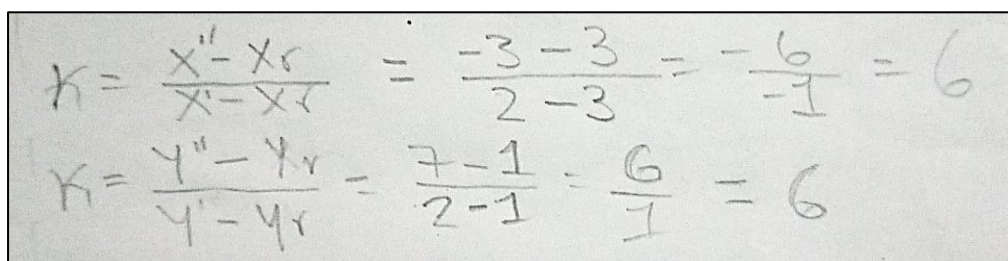 K = \frac{x'' - xr}{x' - xr} = \frac{-3 - 3}{2 - 3} = \frac{-6}{-1} = 6
K = \frac{y'' - yr}{y' - yr} = \frac{7 - 1}{2 - 1} = \frac{6}{1} = 6